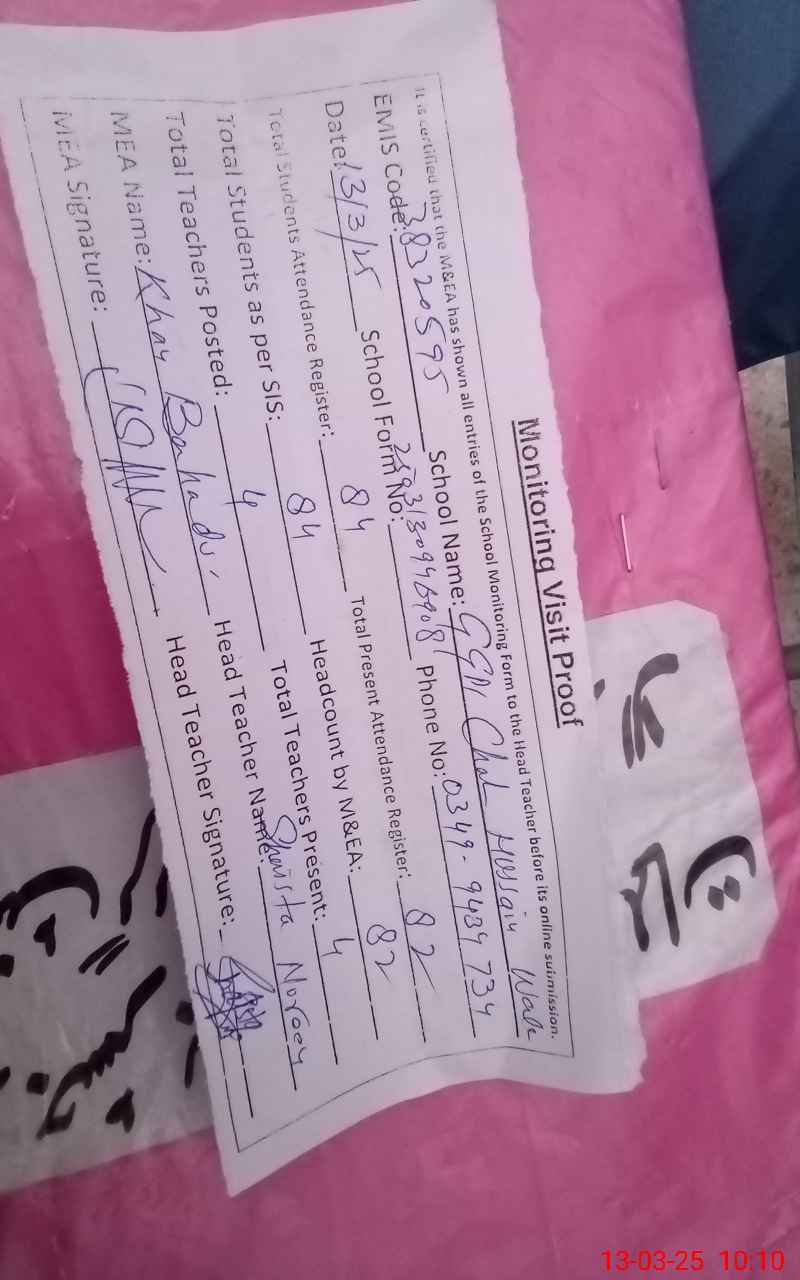 Monitoring Visit Proof
It is certified that the M&EA has shown all entries of the School Monitoring Form to the Head Teacher before its online submission.
EMIS Code: 38320595 School Name: GGPS Chah Hussain Wala
Date: 13/3/25 School Form No: Phone No: 0349-9434734
Total Students Attendance Register: 84 Total Present Attendance Register: 82
Total Students as per SIS: 84 Headcount by M&EA: 82
Total Teachers Posted: 4 Total Teachers Present: 4
MEA Name: Khan Bahadur Head Teacher Name: Shaista Noreen
MEA Signature: Head Teacher Signature:
13-03-25 10:10